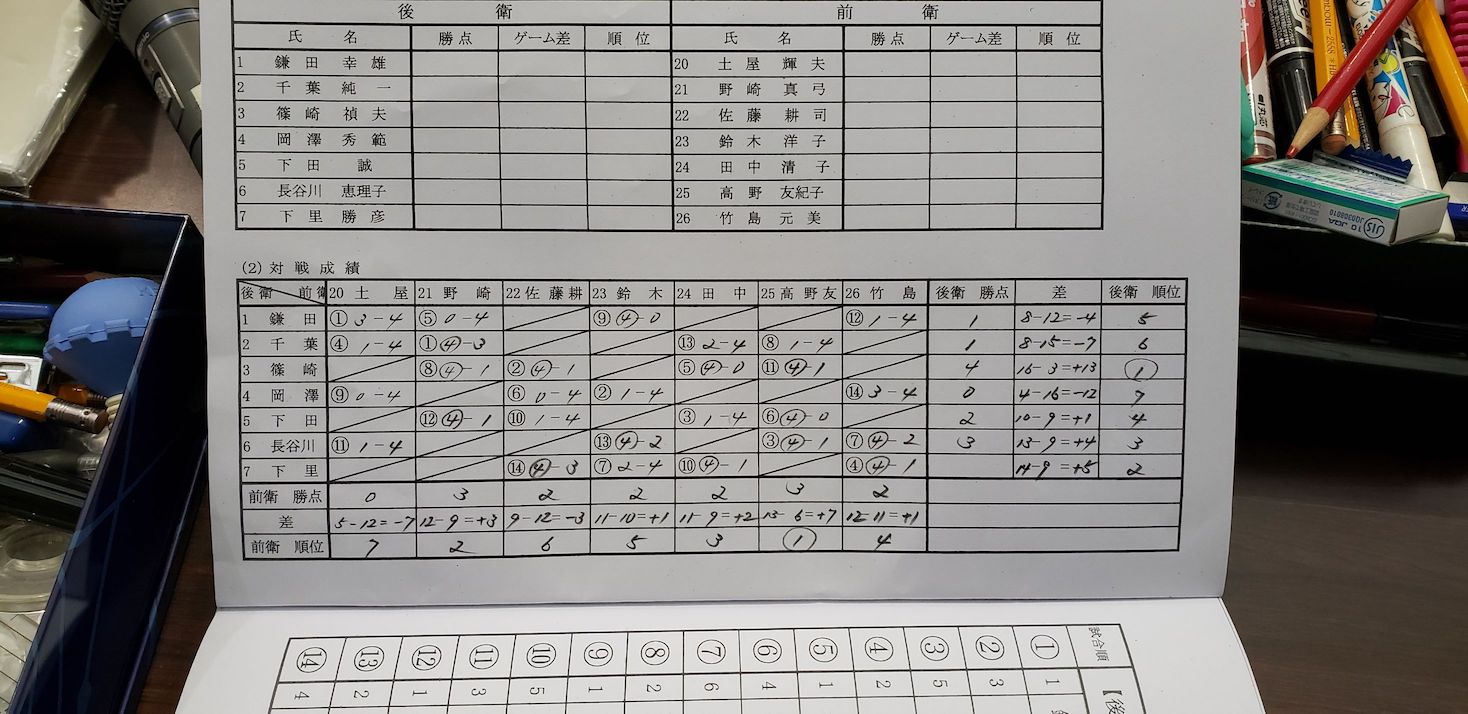 後 衛 前 衛
氏 名 勝点 ゲーム差 順 位 氏 名 勝点 ゲーム差 順 位
1 鎌 田 幸 雄 20 土 屋 輝 夫
2 千 葉 純 一 21 野 崎 真 弓
3 篠 崎 禎 夫 22 佐 藤 耕 司
4 岡 澤 秀 範 23 鈴 木 洋 子
5 下 田 誠 24 田 中 清 子
6 長谷川 恵理子 25 高 野 友紀子
7 下 里 勝 彦 26 竹 島 元 美
(2) 対 戦 成 績
後衛 前衛 20 土 屋 21 野 崎 22 佐 藤 耕 23 鈴 木 24 田 中 25 高 野 友 26 竹 島 後衛 勝点 差 後衛 順位
1 鎌 田 ① 3-4 ⑤ 0-4 ⑨ ④-0 ⑫ 1-4 1 8-12=-4 5
2 千 葉 ④ 1-4 ① ④-3 ⑬ 2-4 ⑧ 1-4 1 8-15=-7 6
3 篠 崎 ⑧ ④-1 ② ④-1 ⑤ ④-0 ⑪ ④-1 4 16-3=+13 ①
4 岡 澤 ⑨ 0-4 ⑥ 0-4 ② 1-4 ⑭ 3-4 0 4-16=-12 7
5 下 田 ⑫ ④-1 ⑩ 1-4 ③ 1-4 ⑥ ④-0 2 10-9=+1 4
6 長谷川 ⑪ 1-4 ⑬ ④-2 ③ ④-1 ⑦ ④-2 3 13-9=+4 3
7 下 里 ⑭ ④-3 ⑦ 2-4 ⑩ ④-1 ④ ④-1 14-9=+5 2
前衛 勝点 0 3 2 2 2 3 2
差 5-12=-7 12-9=+3 9-12=-3 11-10=+1 11-9=+2 13-6=+7 12-11=+1
前衛 順位 7 2 6 5 3 ① 4
⑭ ⑬ ⑫ ⑪ ⑩ ⑨ ⑧ ⑦ ⑥ ⑤ ④ ③ ② ① 試合順
4 2 1 3 5 1 2 6 4 1 2 5 3 1 【後
JIS